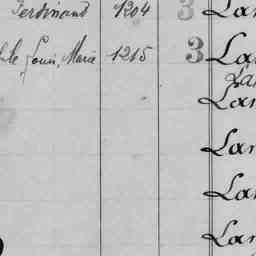 Ferdinand 1204 3 Lan
Louis, Marie 1215 3 Lan
Lan
Lan
Lan
Lan